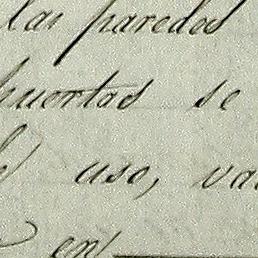 las paredes
puertas se
uso, va
en